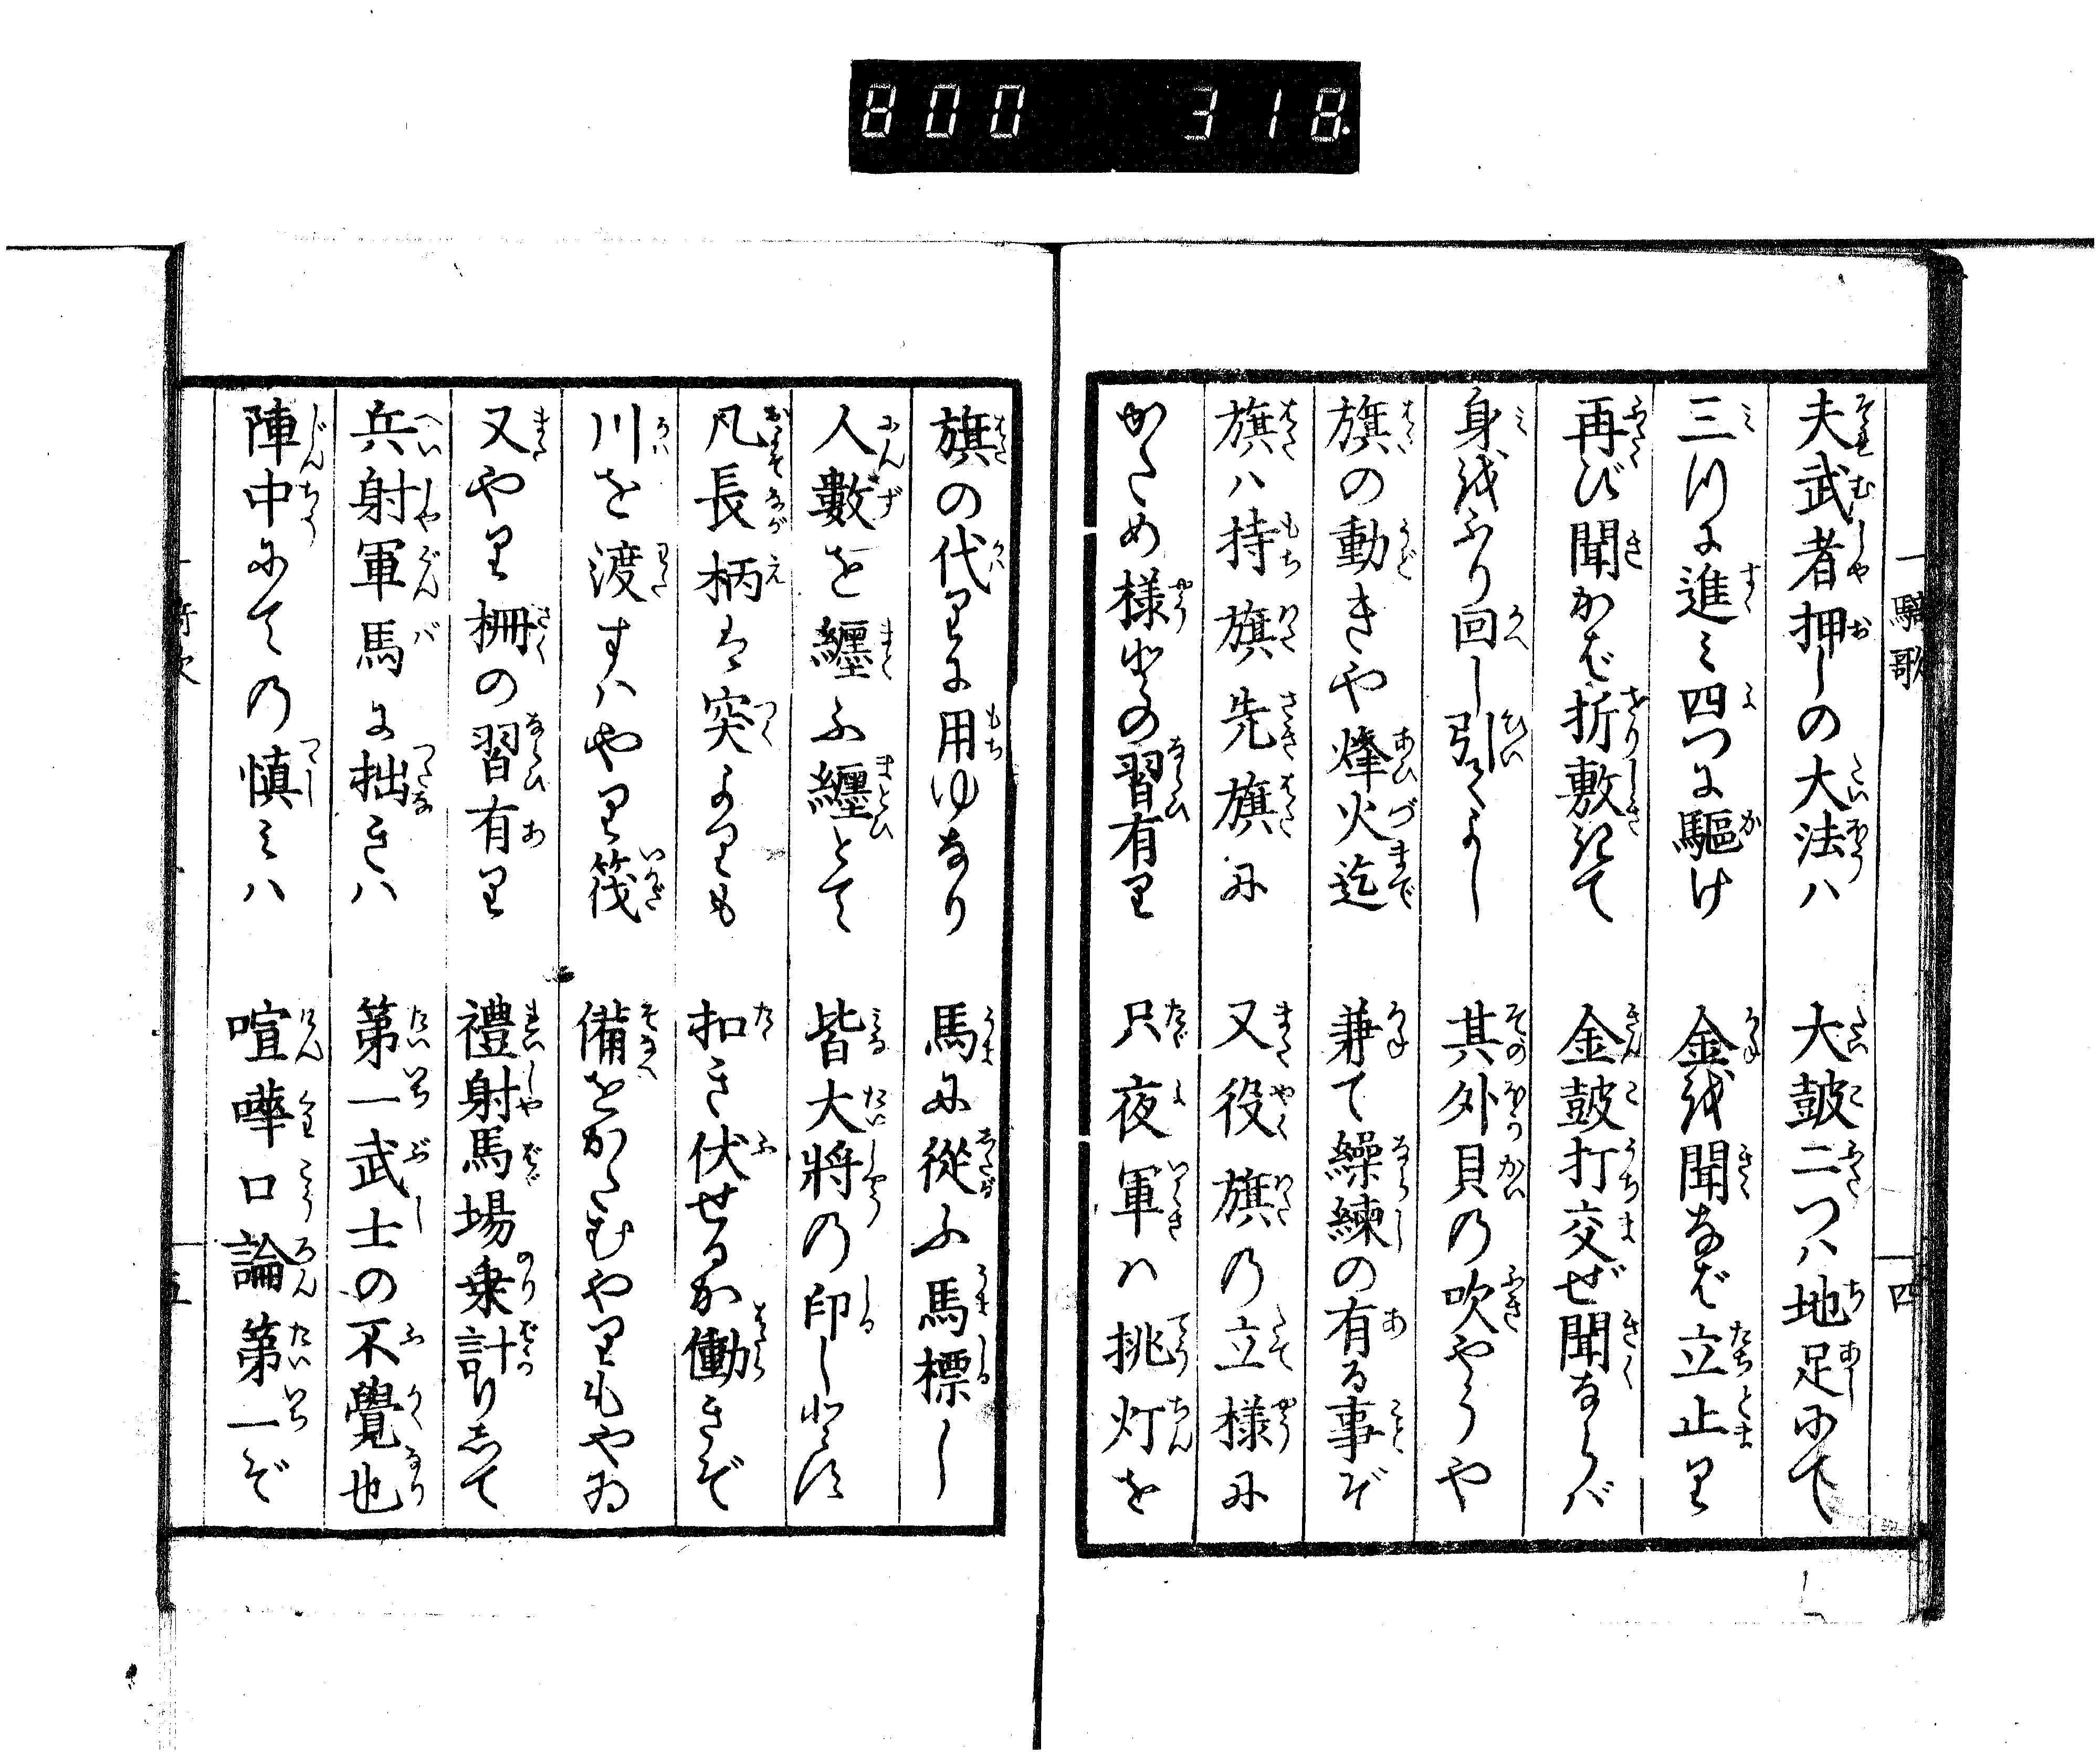 800 318.
一騎歌
四
夫武者押しの大法ハ 大鼓二つハ地足にて
三つに進ミ四つに驅け 金を聞なば立止り
再び聞かば折敷きて 金鼓打交ぜ聞ならバ
身をふり回し引くよし 其外貝の吹やうや
旗の動きや烽火迄 兼て繰練の有る事ぞ
旗ハ持旗先旗に 又役旗の立様に
かため様との習有り 只夜軍ハ挑灯を
旗の代りに用ゆなり 馬に從ふ馬標し
人數を纏ふ纏とて 皆大將の印しとす
凡長柄は突よりも 扣き伏せるか働きぞ
川を渡すハやり筏 備をかためむやりもやゐ
又やり柵の習有り 禮射馬場乗計りして
兵射軍馬に拙きハ 第一武士の不覺也
陣中にての慎ミハ 喧嘩口論第一ぞ